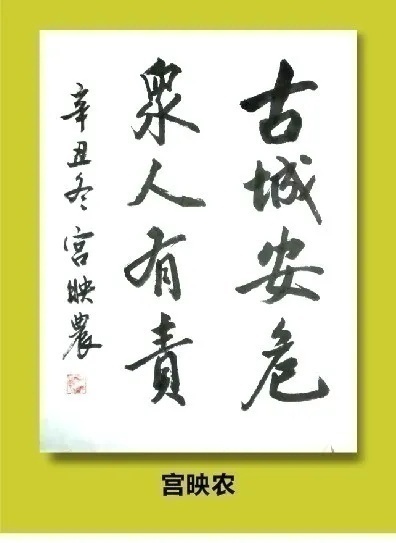 古城安危
眾人有責
辛丑冬宫映農
宫映农